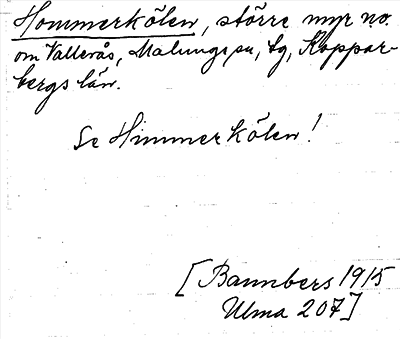 Hommerkölen, större myr n.o.
om Vallerås, Malungs sn, fg, Koppar-
bergs län.
Se Himmerkölen!
[Bannbers 1915
Ulma 207]